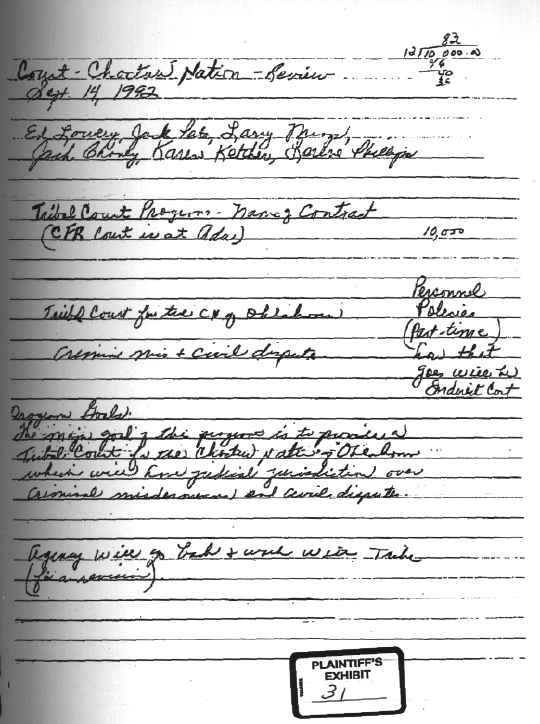 83
12/10 000.00
96
40
36
Court - Choctaw Nation - Review
Sept. 14, 1992
Ed Lowery, Jack Pate, Larry
Jack Chaney, Karen Ketcher, Phillips
Tribal Court Program - Name of Contract
(CFR Court is at Ada) 10,000
Personnel
Policies
Tribal Court for the CN of Oklahoma
(Part-time)
Criminal mis + civil dispute
how that
goes will be
Indirect Cost
Program Goals:
The major goal of the program is to provide a
Tribal Court for the Choctaw Nation of Oklahoma
which will have judicial jurisdiction over
criminal misdemeanors and civil disputes.
Agency will go back & work with Tribe
(for a revision).
PLAINTIFF'S
EXHIBIT
31